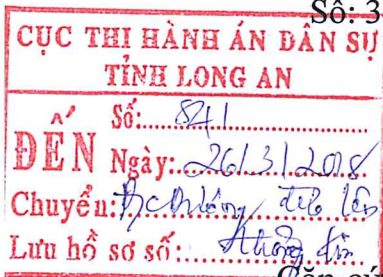 Số: 3
CỤC THI HÀNH ÁN DÂN SỰ
TỈNH LONG AN
ĐẾN
Số: 841
Ngày: 26/3/2018
Chuyển:
Lưu hồ sơ số:
Căn cứ